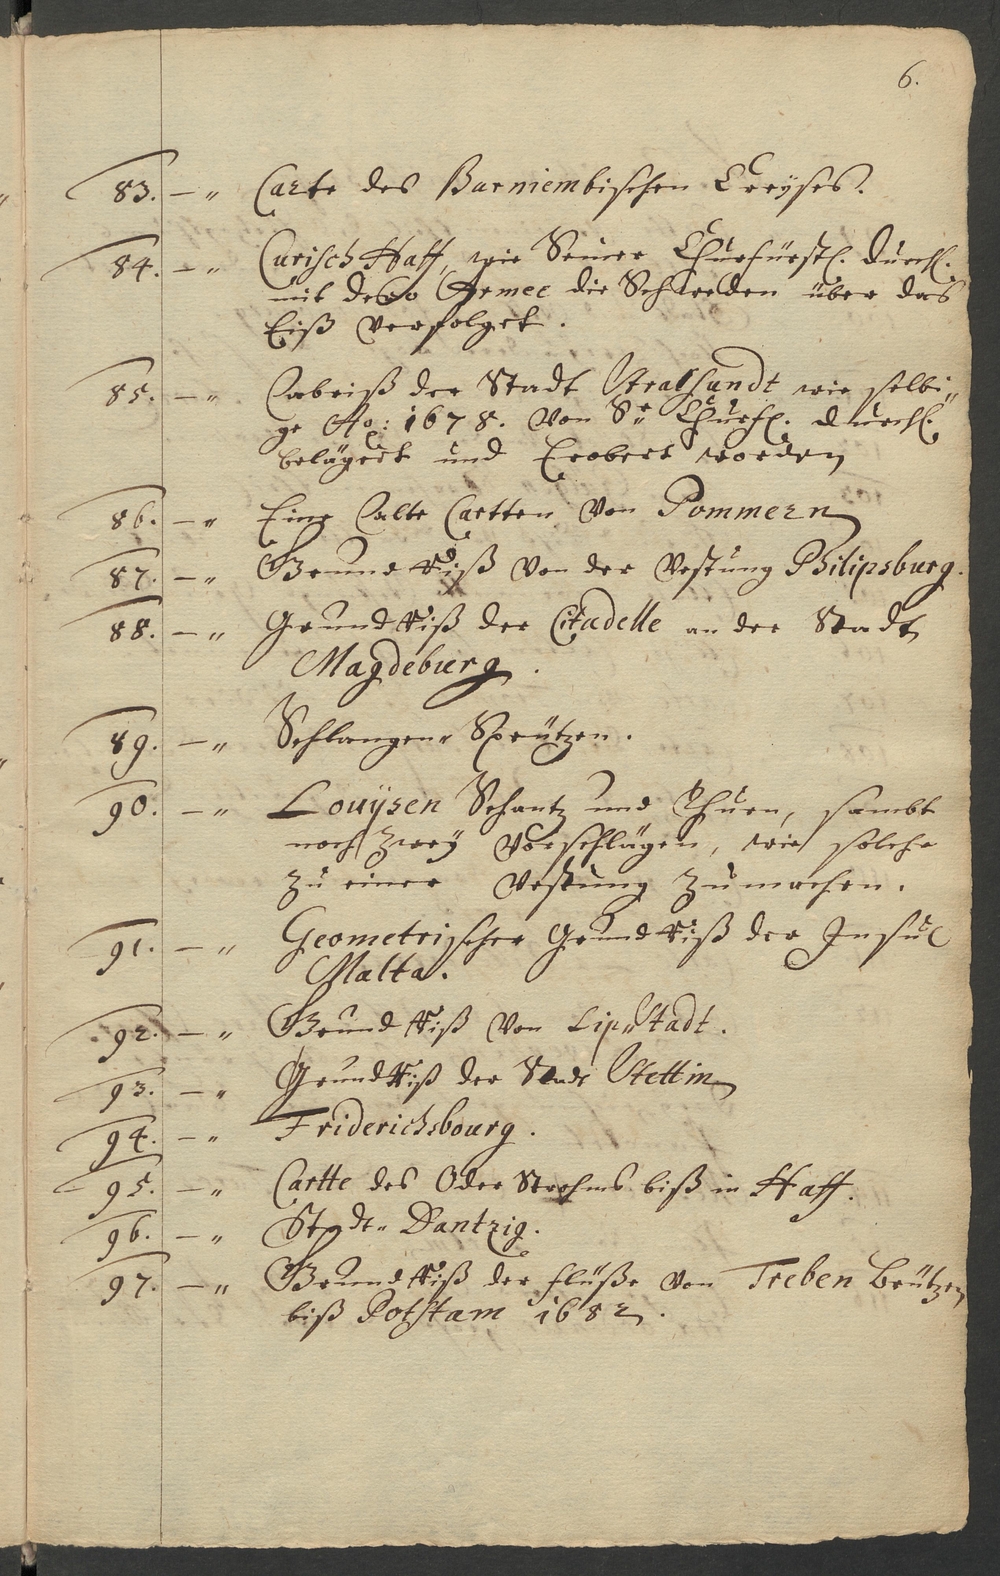 6.
83. – „ Carte des Barniembischen Creyses.
84. – „ Curisch Haff, wie Seiner Churfürstl. Durchl.
mit dero Armee die Schweden über das
Eiß verfolget.
85. – „ Abriß der Stadt Stralsundt wie selbi„
ge Ao: 1678. von Sr Churfl. Durchl.
belägert und Erobert worden
86. – „ Eine Alte Cartten von Pommern
87. – „ Grund Riß von der Vestung Philipsburg.
88. – „ Grund Riß der Citadelle an der Stadt
Magdeburg.
89. – „ Schlangen„ Sprützen.
90. – „ Louÿsen Schantz und Thurn, sambt
noch zweÿ Vorschlägen, wie solche
zu einer Vestung zumachen.
91. – „ Geometrischer Grund Riß der Insul
Malta.
92. – „ Grund Riß von Lip„Stadt.
93. – „ Grund Riß der Stadt Stettin
94. – „ Friderichsbourg.
95. – „ Cartte des Oder Strohms biß in Haff.
96. – „ Stadt„ Dantzig.
97. – „ Grund Riß der flüße von Treben Brützen
biß Pothstam 1682.